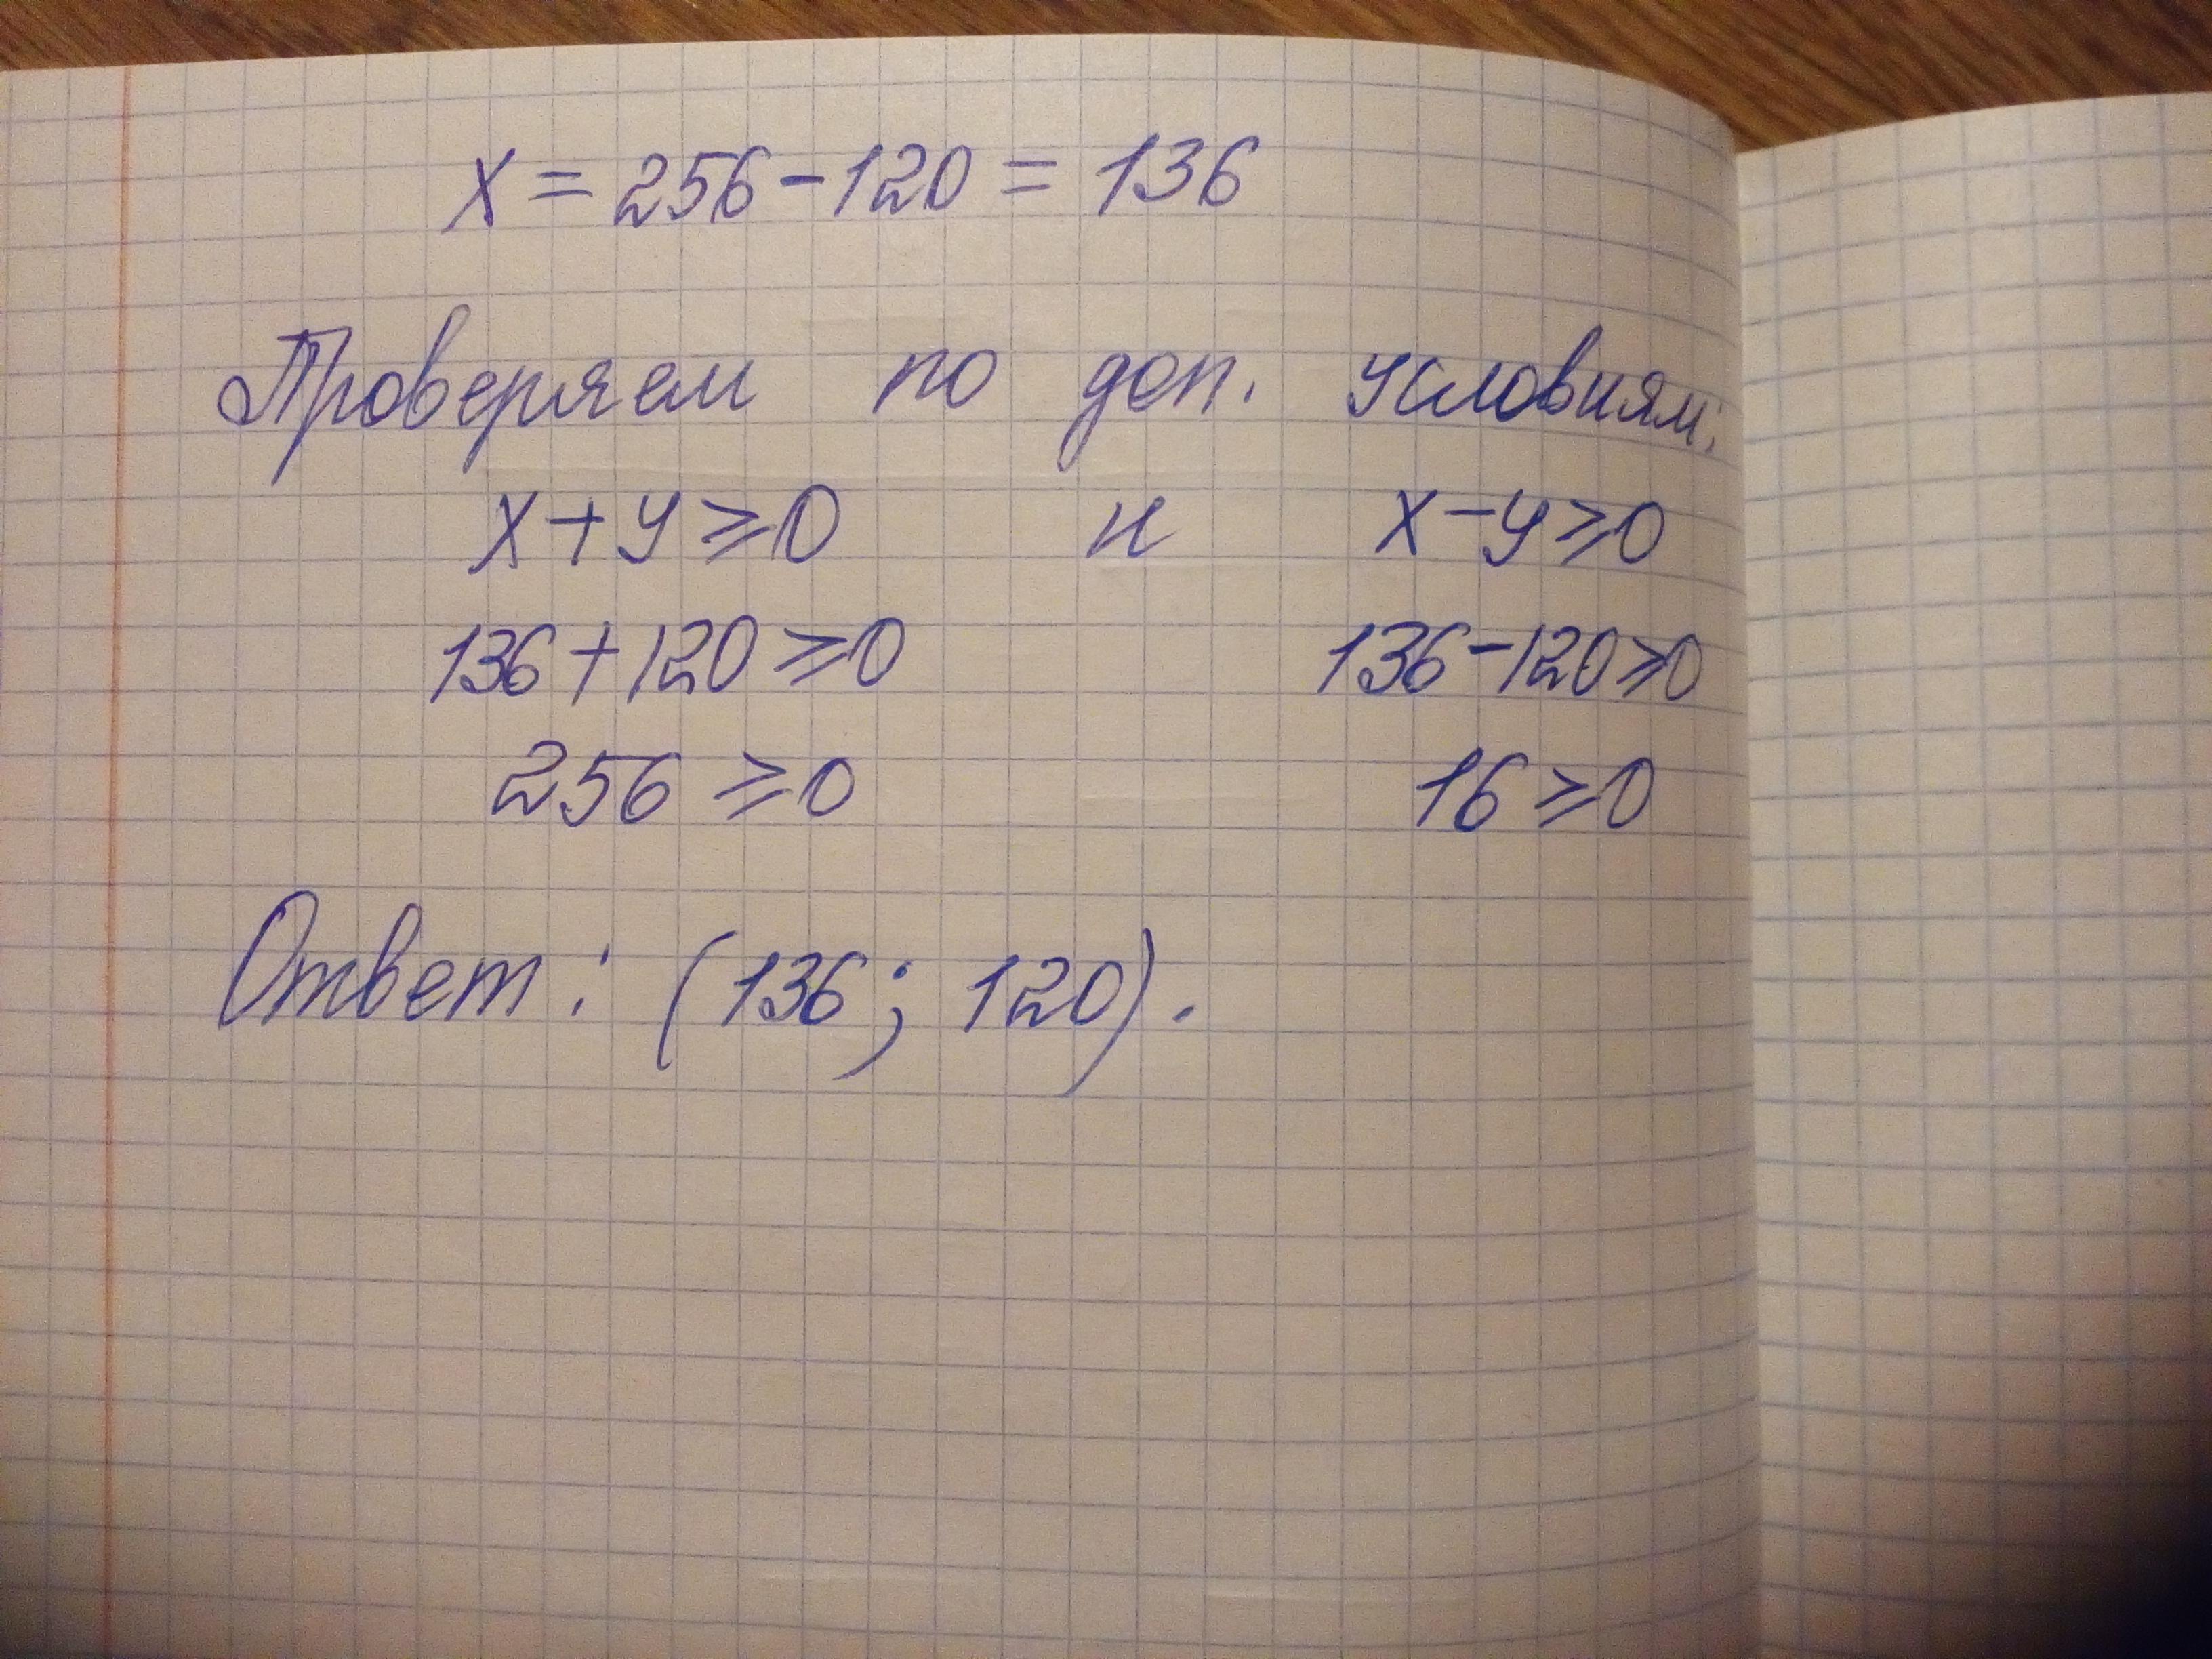 x = 256 - 120 = 136
Проверяем по доп. условиям:
x + y ⩾ 0 и x - y ⩾ 0
136 + 120 ⩾ 0 136 - 120 ⩾ 0
256 ⩾ 0 16 ⩾ 0
Ответ: (136; 120).